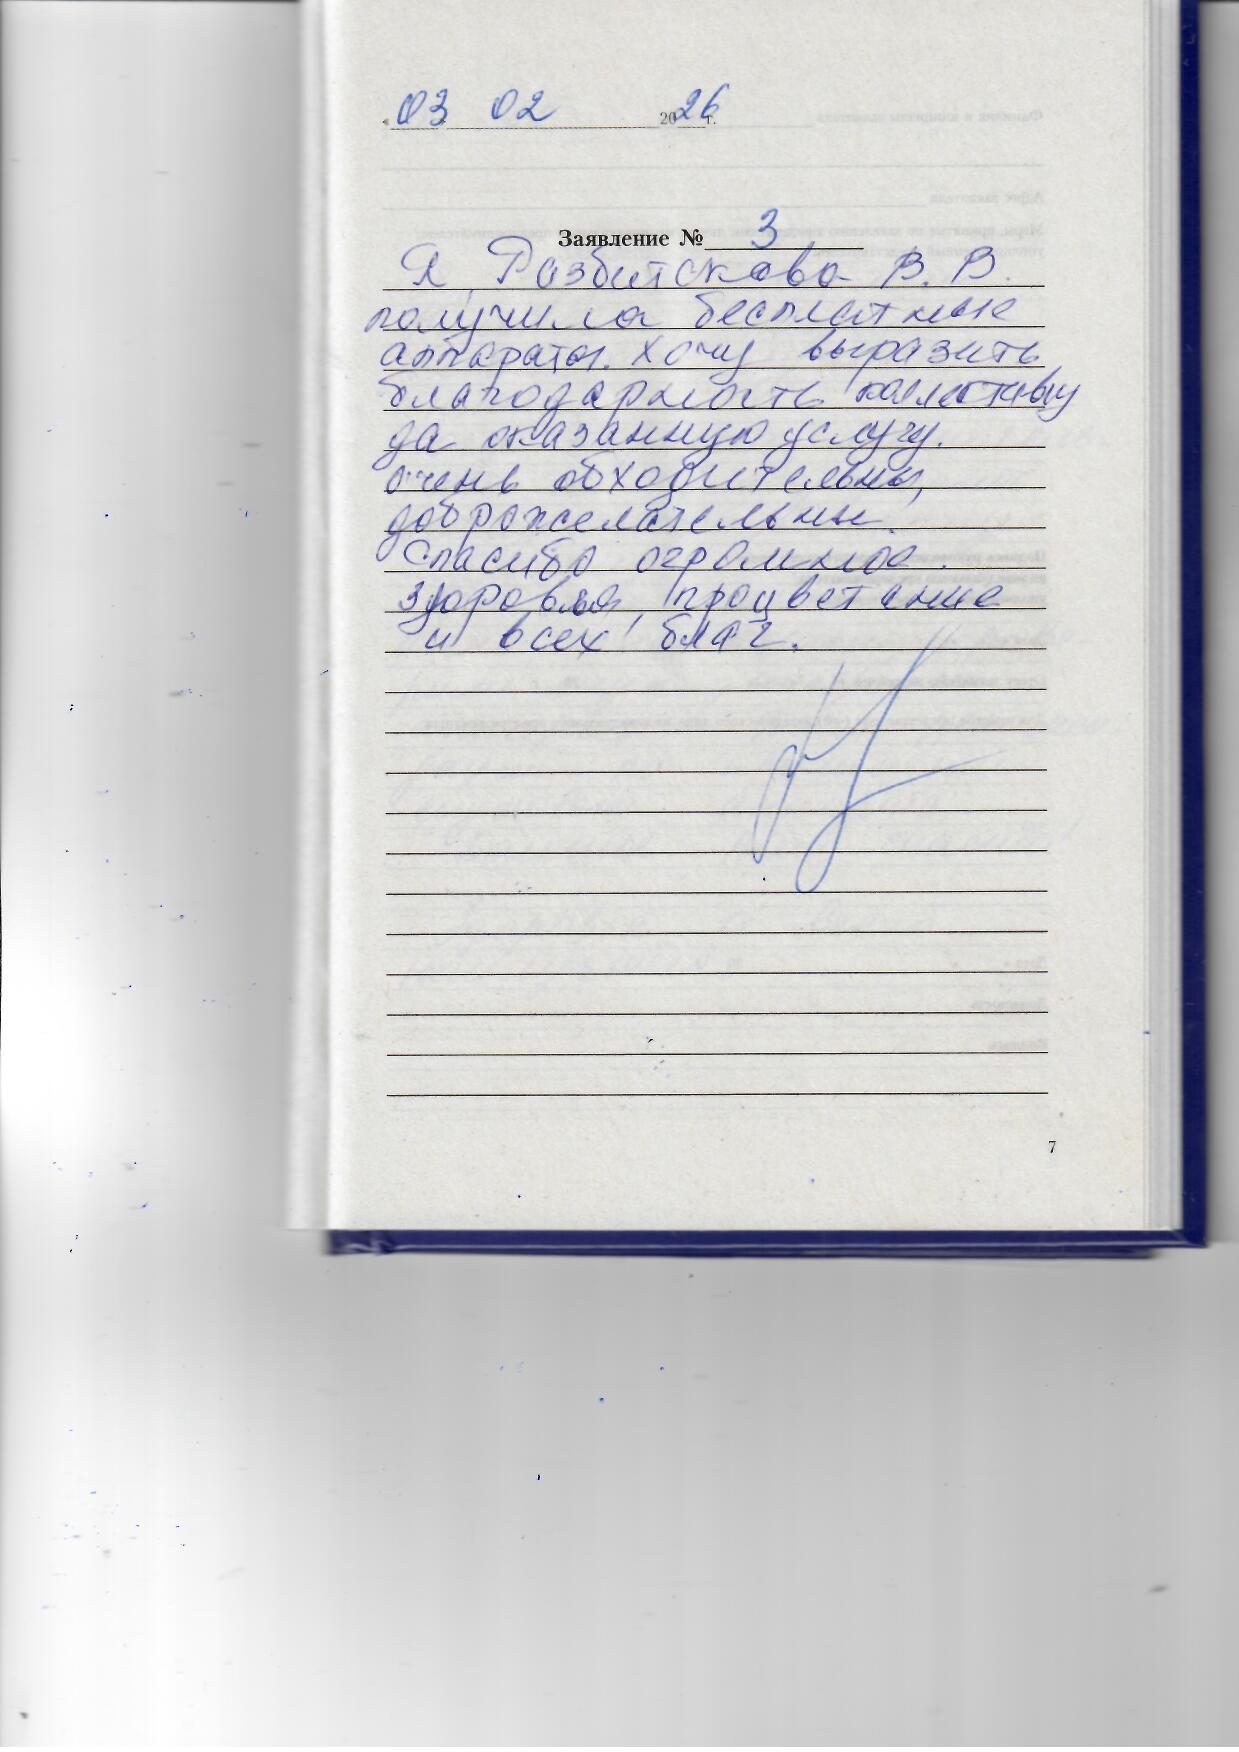 03 02 2026 г.
Заявление № 3
Я, Разбитскова В. В.
получила бесплатные
аппараты. Хочу выразить
благодарность коллективу
за оказанную услугу.
очень обходительны,
доброжелательны.
Спасибо огромное.
Здоровья, процветание
и всех благ.
7